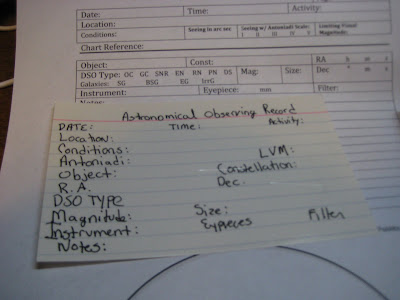 Date: Time: Activity:
Location:
Conditions: Seeing in arc sec Seeing w/ Antoniadi Scale: Limiting Visual
I II III IV V Magnitude:
Chart Reference:
Object: Const: RA h m s
DSO Type: OC GC SNR EN RN PN DS Mag: Size: Dec ° m s
Galaxies: SG BSG EG IrrG
Instrument: Eyepiece: mm Filter:
Notes:
Astronomical Observing Record
DATE: Time: Activity:
Location:
Conditions: LVM:
Antoniadi: Constellation:
Object: Dec.
R.A.
DSO TYPE
Magnitude: Size:
Instrument: Eypieces Filter
Notes: